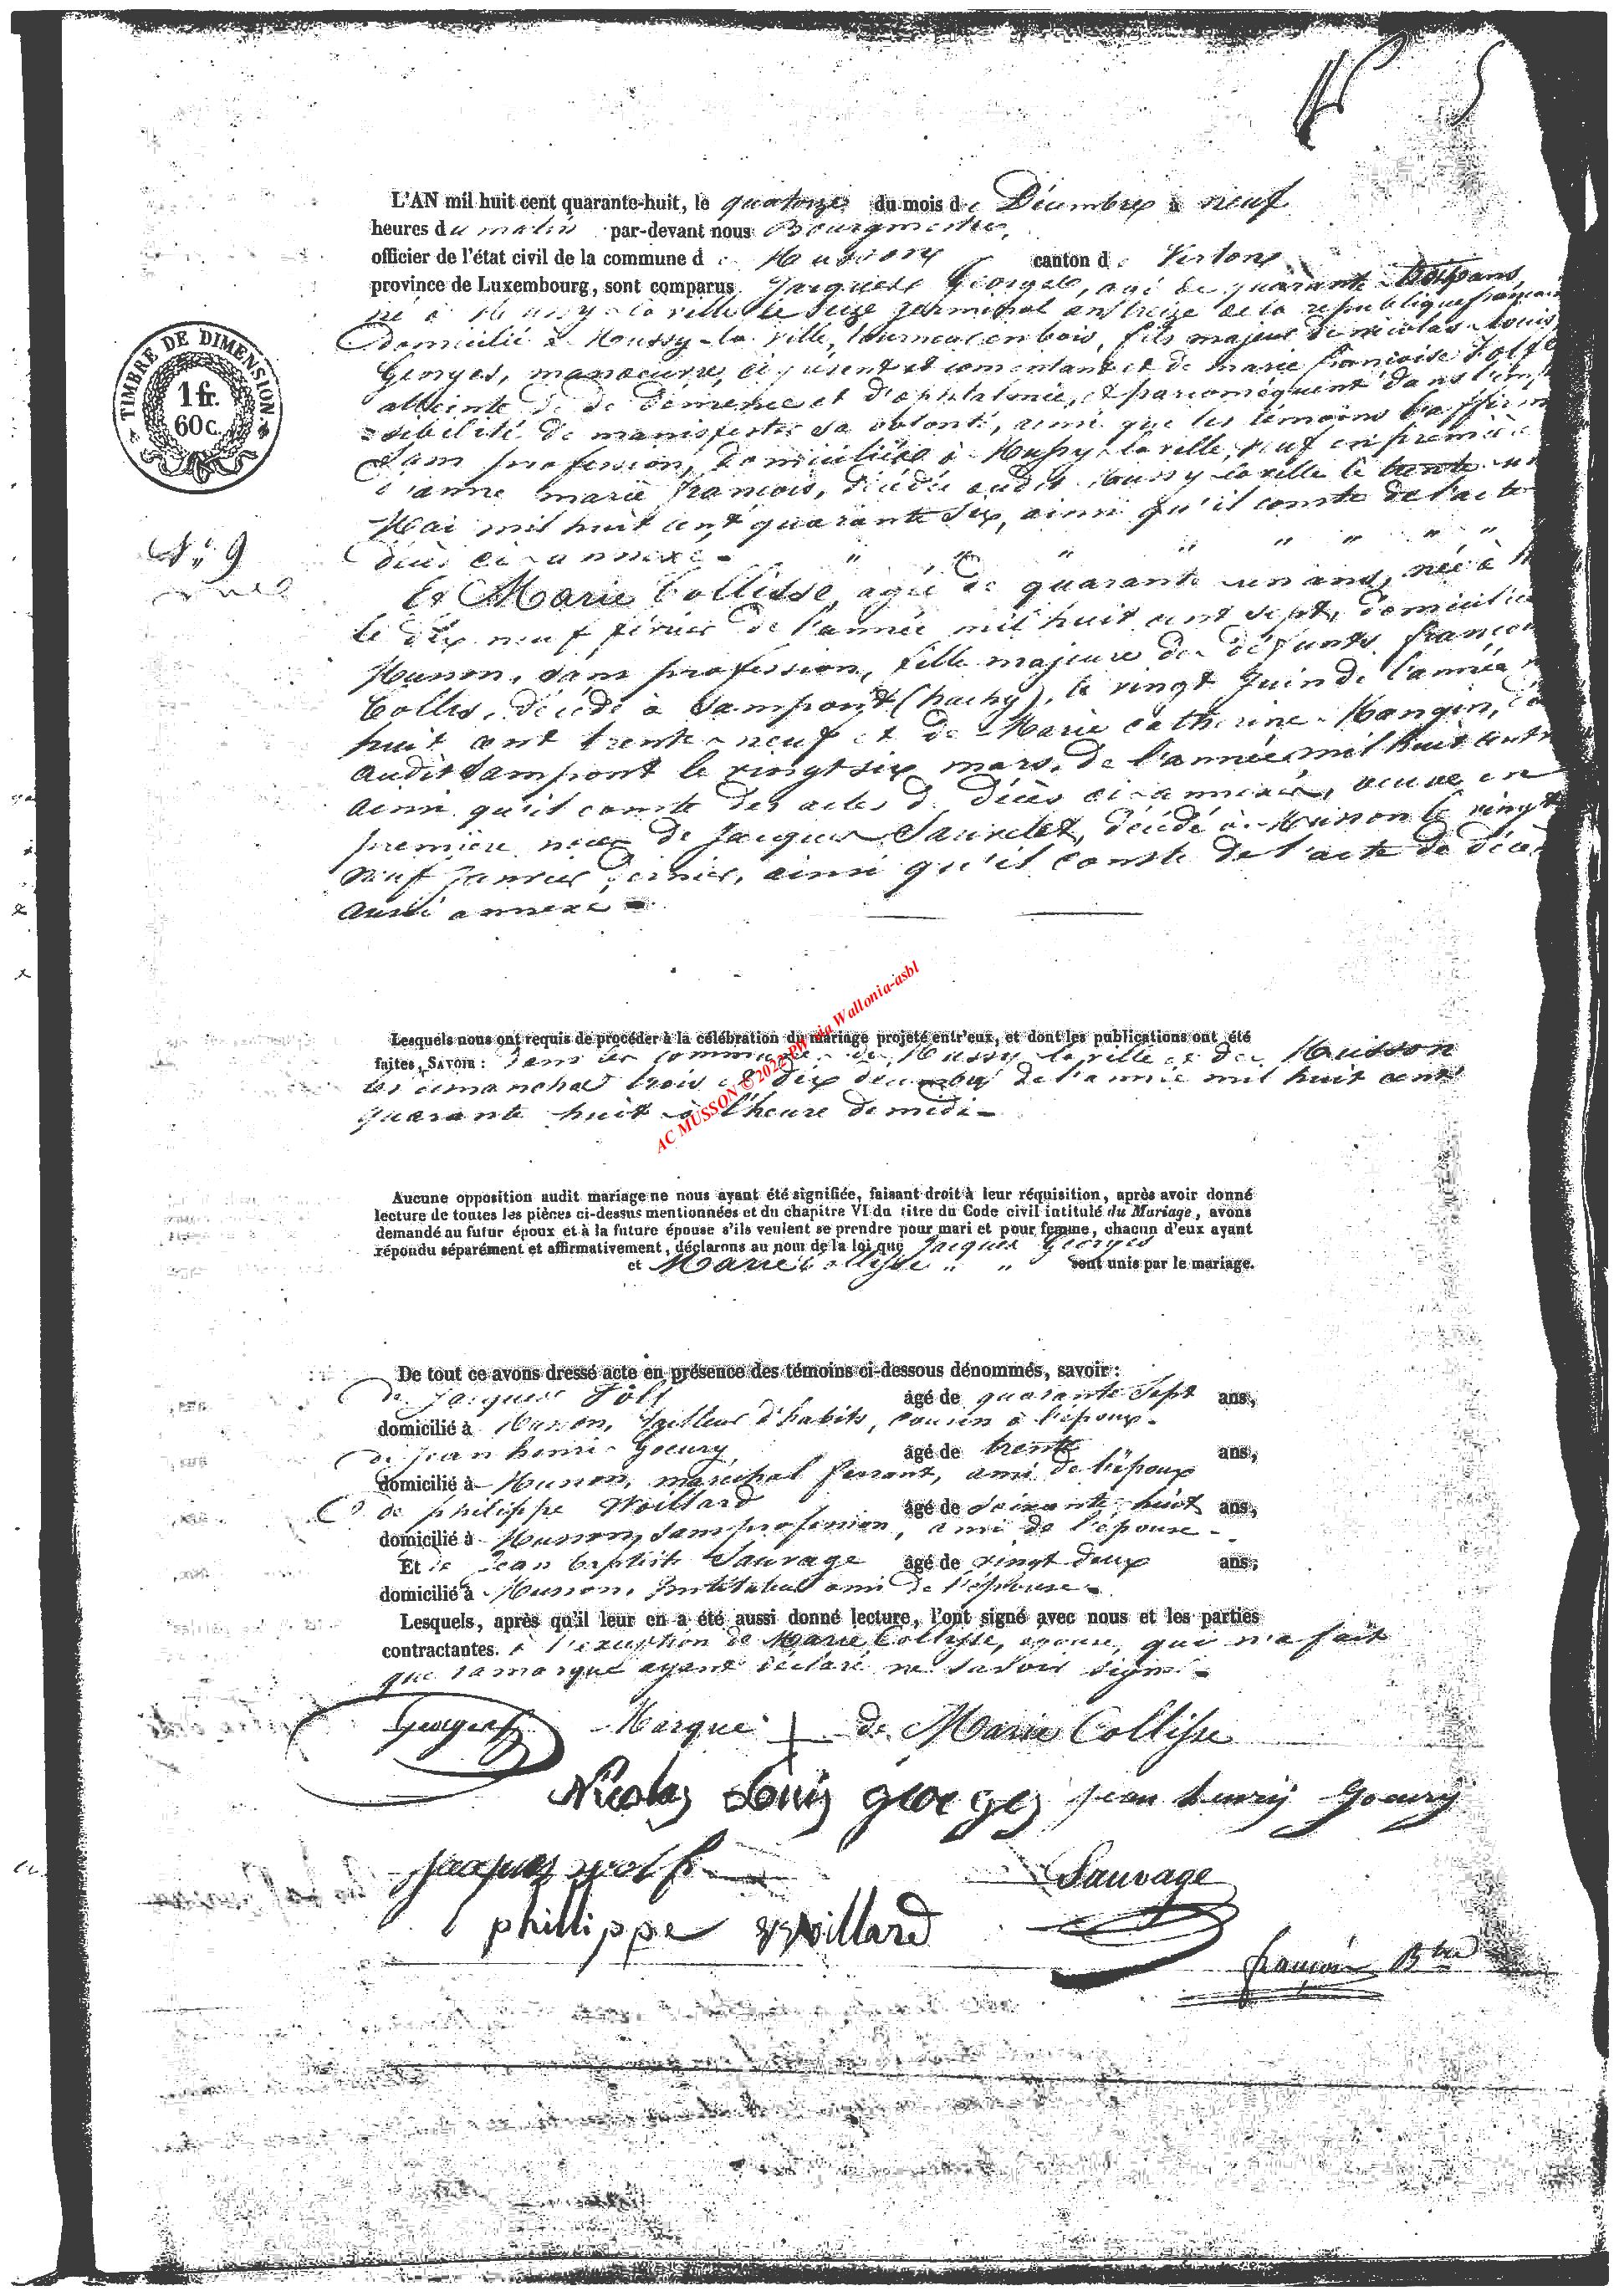 L'AN mil huit cent quarante-huit, le quatorze du mois de Décembre à neuf
heures du matin par-devant nous Bourgmestre,
officier de l'état civil de la commune de Musson canton de Virton
province de Luxembourg, sont comparus Jacques Georges, agé de quarante trois ans,
né à Mussy-la-ville le seize germinal an treize de la république française
Domicilié à Moussy-la-Ville, tourneur en bois, fils majeur de nicolas-Louis
Georges, manoeuvre, ci présent et consentant et de marie françoise
atteinte de démence et d'ophtalmie, et par conséquent dans l'impo
ssibilité de manifester sa volonté, ainsi que les témoins l'affirm
sans profession, domiciliée à Mussy-la-ville, veuf en première
d'anne marie françois, décédée audit Mussy-la-ville le trente-un
Mai mil huit cent quarante six, ainsi qu'il conste de l'acte
décès ci-annexé -
Et Marie Collisse, agée de quarante-un ans, née à
le dix neuf février de l'année mil huit cent sept, domiciliée
Musson, sans profession, fille majeure des défunts françois
Collis, décédé à Sampont (hachy), le vingt Juin de l'année
huit cent trente-neuf et de Marie catherine Mangin,
audit Sampont le vingt six mars, de l'année mil huit cent
ainsi qu'il conste des actes de décès ci-annexés, veuve en
première noces de Jacques, décédé à Musson le vingt
neuf Janvier dernier, ainsi qu'il conste de l'acte de décès
aussi annexé -
TIMBRE DE DIMENSION
1 fr.
60 c.
N° 9
Lesquels nous ont requis de procéder à la célébration du mariage projeté entr'eux, et dont les publications ont été
faites, SAVOIR : dans les communes de Mussy la ville et de Musson
les dimanches trois et dix décembre de l'année mil huit cent
quarante huit à l'heure de midi -
AC MUSSON © 2022-PW via Wallonia-asbl
Aucune opposition audit mariage ne nous ayant été signifiée, faisant droit à leur réquisition, après avoir donné
lecture de toutes les pièces ci-dessus mentionnées et du chapitre VI du titre du Code civil intitulé du Mariage, avons
demandé au futur époux et à la future épouse s'ils veulent se prendre pour mari et pour femme, chacun d'eux ayant
répondu séparément et affirmativement, déclarons au nom de la loi que Jacques Georges
et Marie Collisse " " sont unis par le mariage.
De tout ce avons dressé acte en présence des témoins ci-dessous dénommés, savoir :
De Jacques âgé de quarante sept ans,
domicilié à Musson, tailleur d'habits, cousin à l'époux -
de jean henri Goeury âgé de trente ans,
domicilié à Musson, maréchal ferrant, ami de l'époux
de philippe Woillard âgé de soixante-huit ans,
domicilié à Musson, sans profession, ami de l'épouse -
Et de Jean baptiste Sauvage âgé de vingt deux ans,
domicilié à Musson, Instituteur ami de l'épouse -
Lesquels, après qu'il leur en a été aussi donné lecture, l'ont signé avec nous et les parties
contractantes. à l'exception de Marie Collisse, épouse, qui n'a fait
que sa marque ayant déclaré ne savoir signer -
Georges Marque + de Marie Collisse
Nicolas Louis georges jean henry Goeury
jacques wolf Sauvage
phillippe woillard
françois Btre